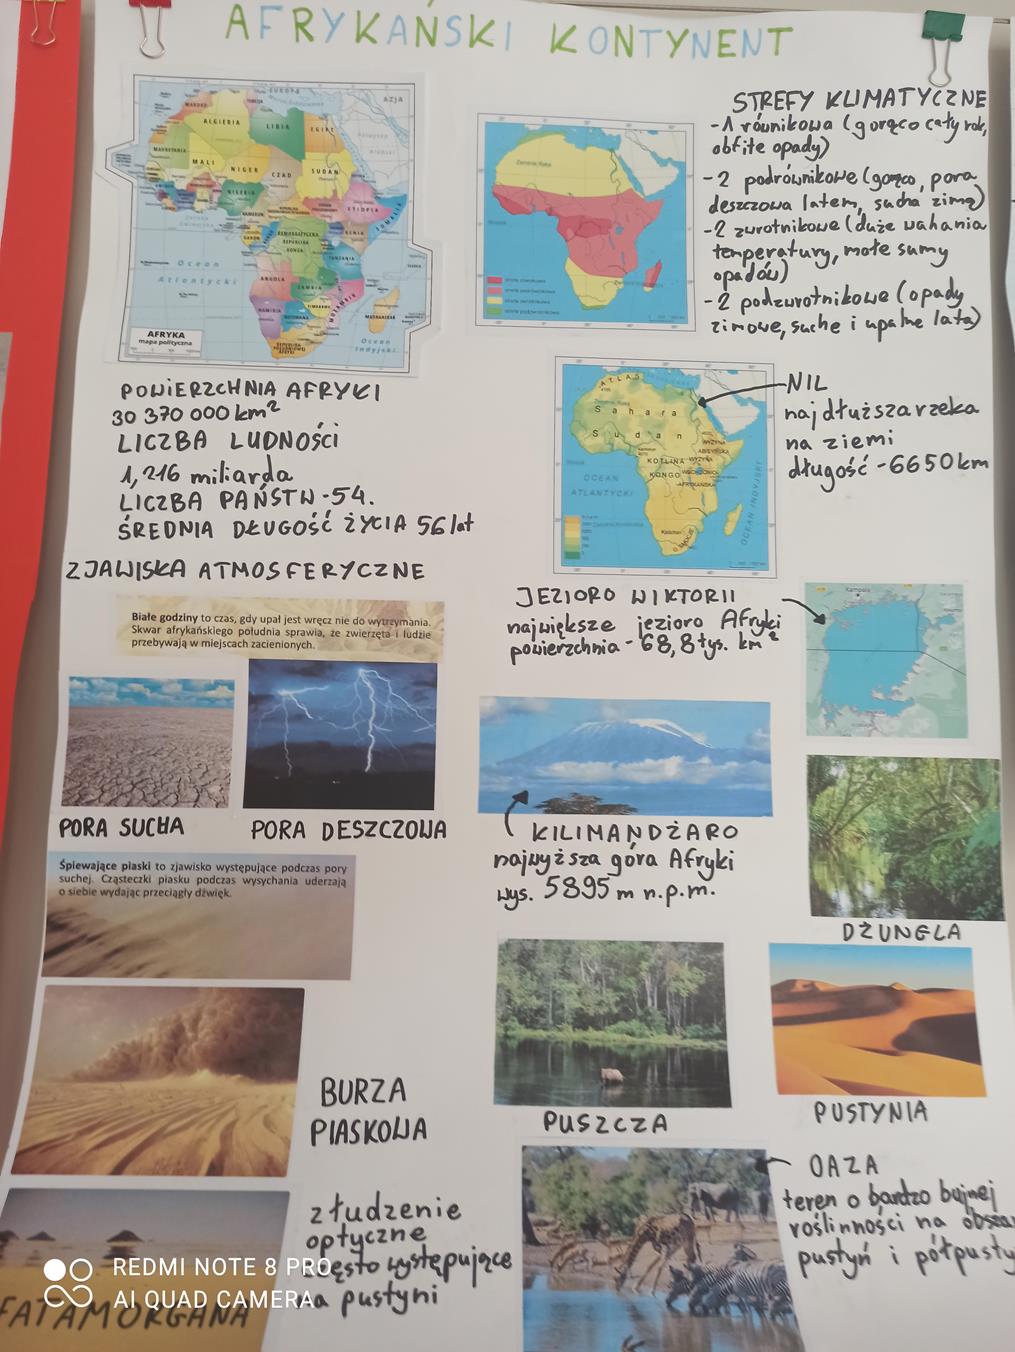 AFRYKAŃSKI KONTYNENT
EUROPA
AZJA
MAROKO
ALGIERIA
LIBIA
EGIPT
MAURETANIA
MALI
NIGER
CZAD
SUDAN
NIGERIA
ETIOPIA
SOMALIA
KENIA
DEMOKRATYCZNA
REPUBLIKA
KONGA
TANZANIA
ANGOLA
ZAMBIA
NAMIBIA
Ocean
Atlantycki
Ocean
Indyjski
AFRYKA
mapa polityczna
STREFY KLIMATYCZNE
-1 równikowa (gorąco cały rok,
obfite opady)
-2 podrównikowe (gorąco, pora
deszczowa latem, sucha zimą)
-2 zwrotnikowe (duże wahania
temperatury, małe sumy
opadów)
-2 podzwrotnikowe (opady
zimowe, suche i upalne lata)
POWIERZCHNIA AFRYKI
30 370 000 km²
LICZBA LUDNOŚCI
1,216 miliarda
LICZBA PAŃSTW -54.
ŚREDNIA DŁUGOŚĆ ŻYCIA 56 lat
ATLAS
Sahara
Sudan
KOTLINA
KONGO
WYŻYNA
ABISYŃSKA
OCEAN
ATLANTYCKI
OCEAN INDYJSKI
NIL
najdłuższa rzeka
na ziemi
długość -6650 km
ZJAWISKA ATMOSFERYCZNE
Białe godziny to czas, gdy upał jest wręcz nie do wytrzymania.
Skwar afrykańskiego południa sprawia, że zwierzęta i ludzie
przebywają w miejscach zacienionych.
PORA SUCHA
PORA DESZCZOWA
JEZIORO WIKTORII
największe jezioro Afryki
powierzchnia - 68,8 tys. km²
Kampala
KILIMANDŻARO
najwyższa góra Afryki
wys. 5895 m n.p.m.
DŻUNGLA
Śpiewające piaski to zjawisko występujące podczas pory
suchej. Cząsteczki piasku podczas wysychania uderzają
o siebie wydając przeciągły dźwięk.
BURZA
PIASKOWA
PUSZCZA
PUSTYNIA
OAZA
teren o bardzo bujnej
roślinności na obsza
pustyń i półpusty
złudzenie
optyczne
często występujące
na pustyni
FATAMORGANA
REDMI NOTE 8 PRO
AI QUAD CAMERA